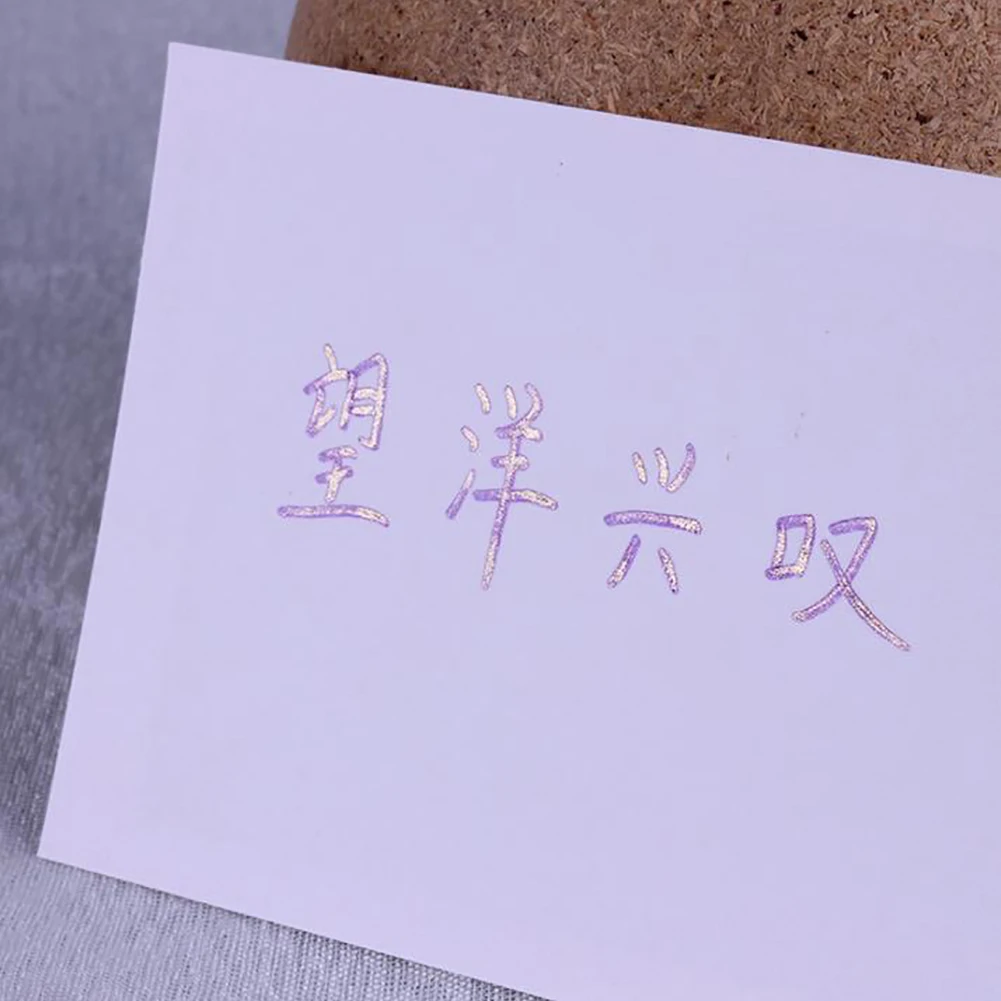 望洋兴叹